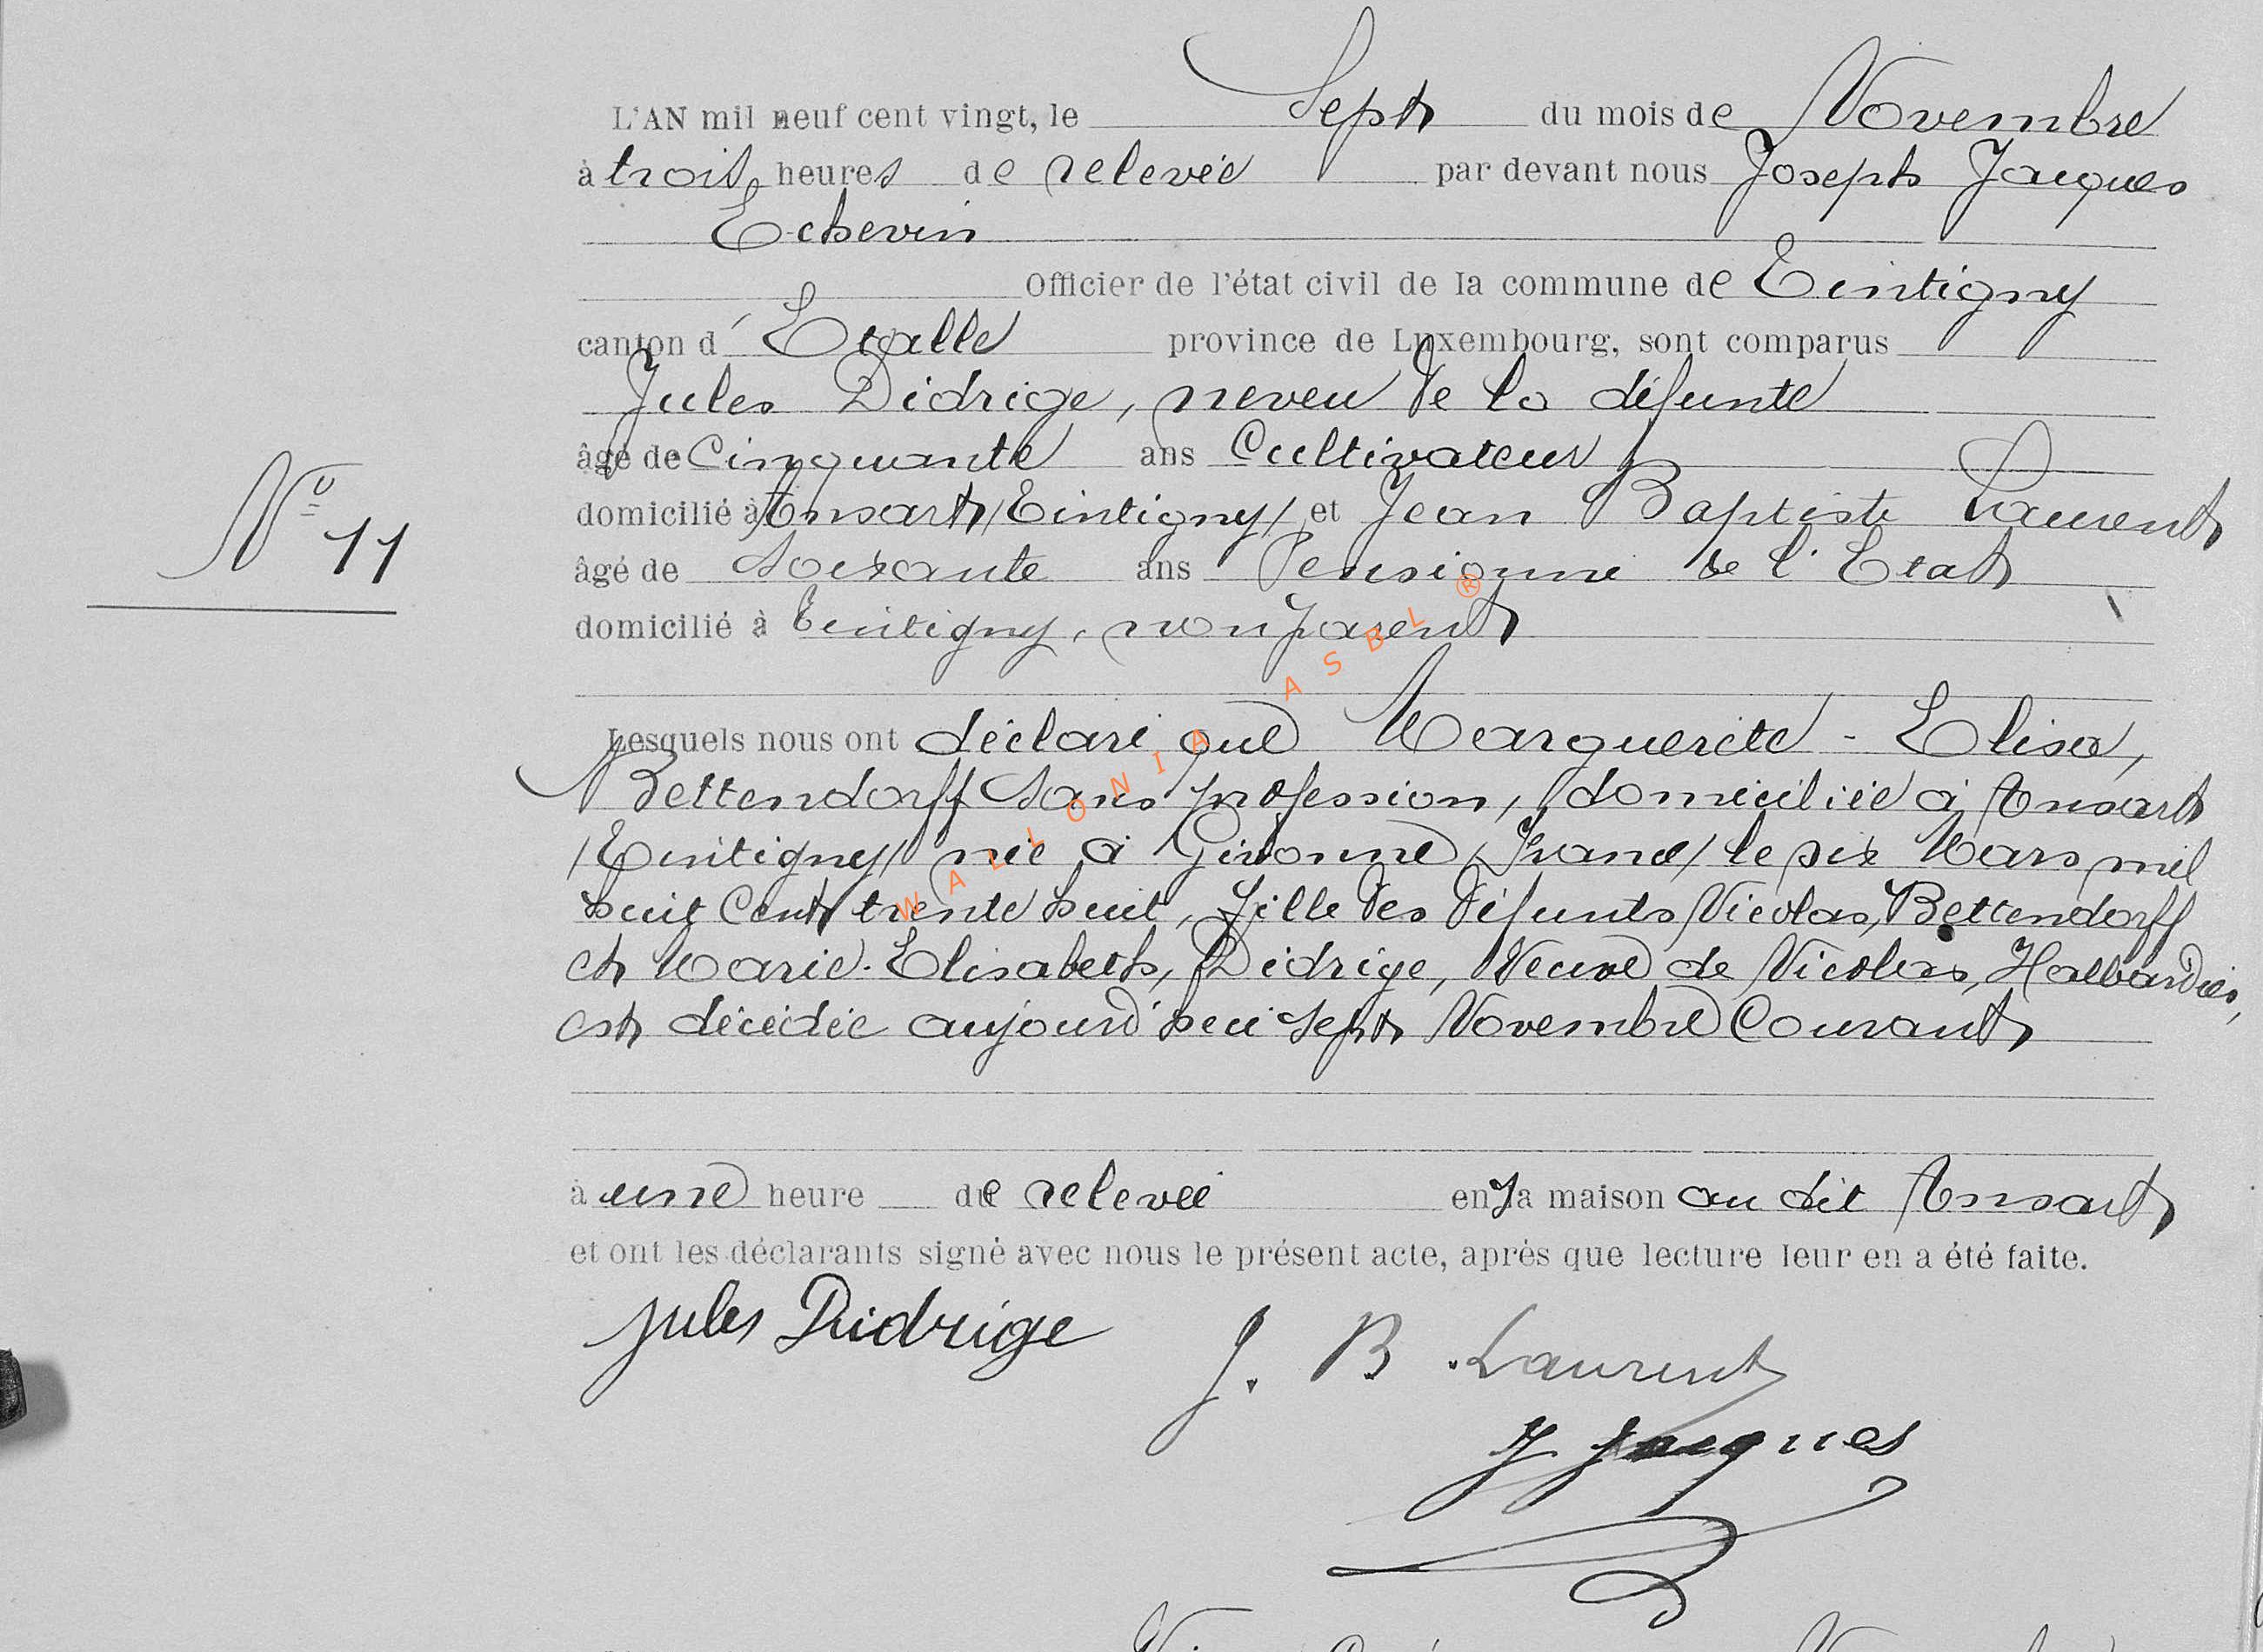 L'AN mil neuf cent vingt, le Sept du mois de Novembre
à trois heures de relevée par devant nous Joseph Jacques
Echevin
Officier de l'état civil de la commune de Tintigny
canton d' Etalle province de Luxembourg, sont comparus
Jules Didrige, neveu de la défunte
âgé de Cinquante ans Cultivateur
domicilié à Ansart /Tintigny/ et Jean Baptiste Laurent
N° 11
âgé de Soixante ans Pensionné de l'Etat
domicilié à Tintigny, non parent
Lesquels nous ont déclaré que Marguerite - Elisa,
Bettendorff sans profession, domiciliée à Ansart
/Tintigny/ née à Givonne /France/ le six Mars mil
huit Cent trente huit, fille des défunts Nicolas, Bettendorff
et Marie-Elisabeth, Didrige, Veuve de Nicolas, Halbardier,
est décédée aujourd'hui sept Novembre Courant
à une heure de relevée en sa maison au dit Ansart
et ont les déclarants signé avec nous le présent acte, après que lecture leur en a été faite.
Jules Didrige
J. B. Laurent
J Jacques
WALLONIA ASBL ®